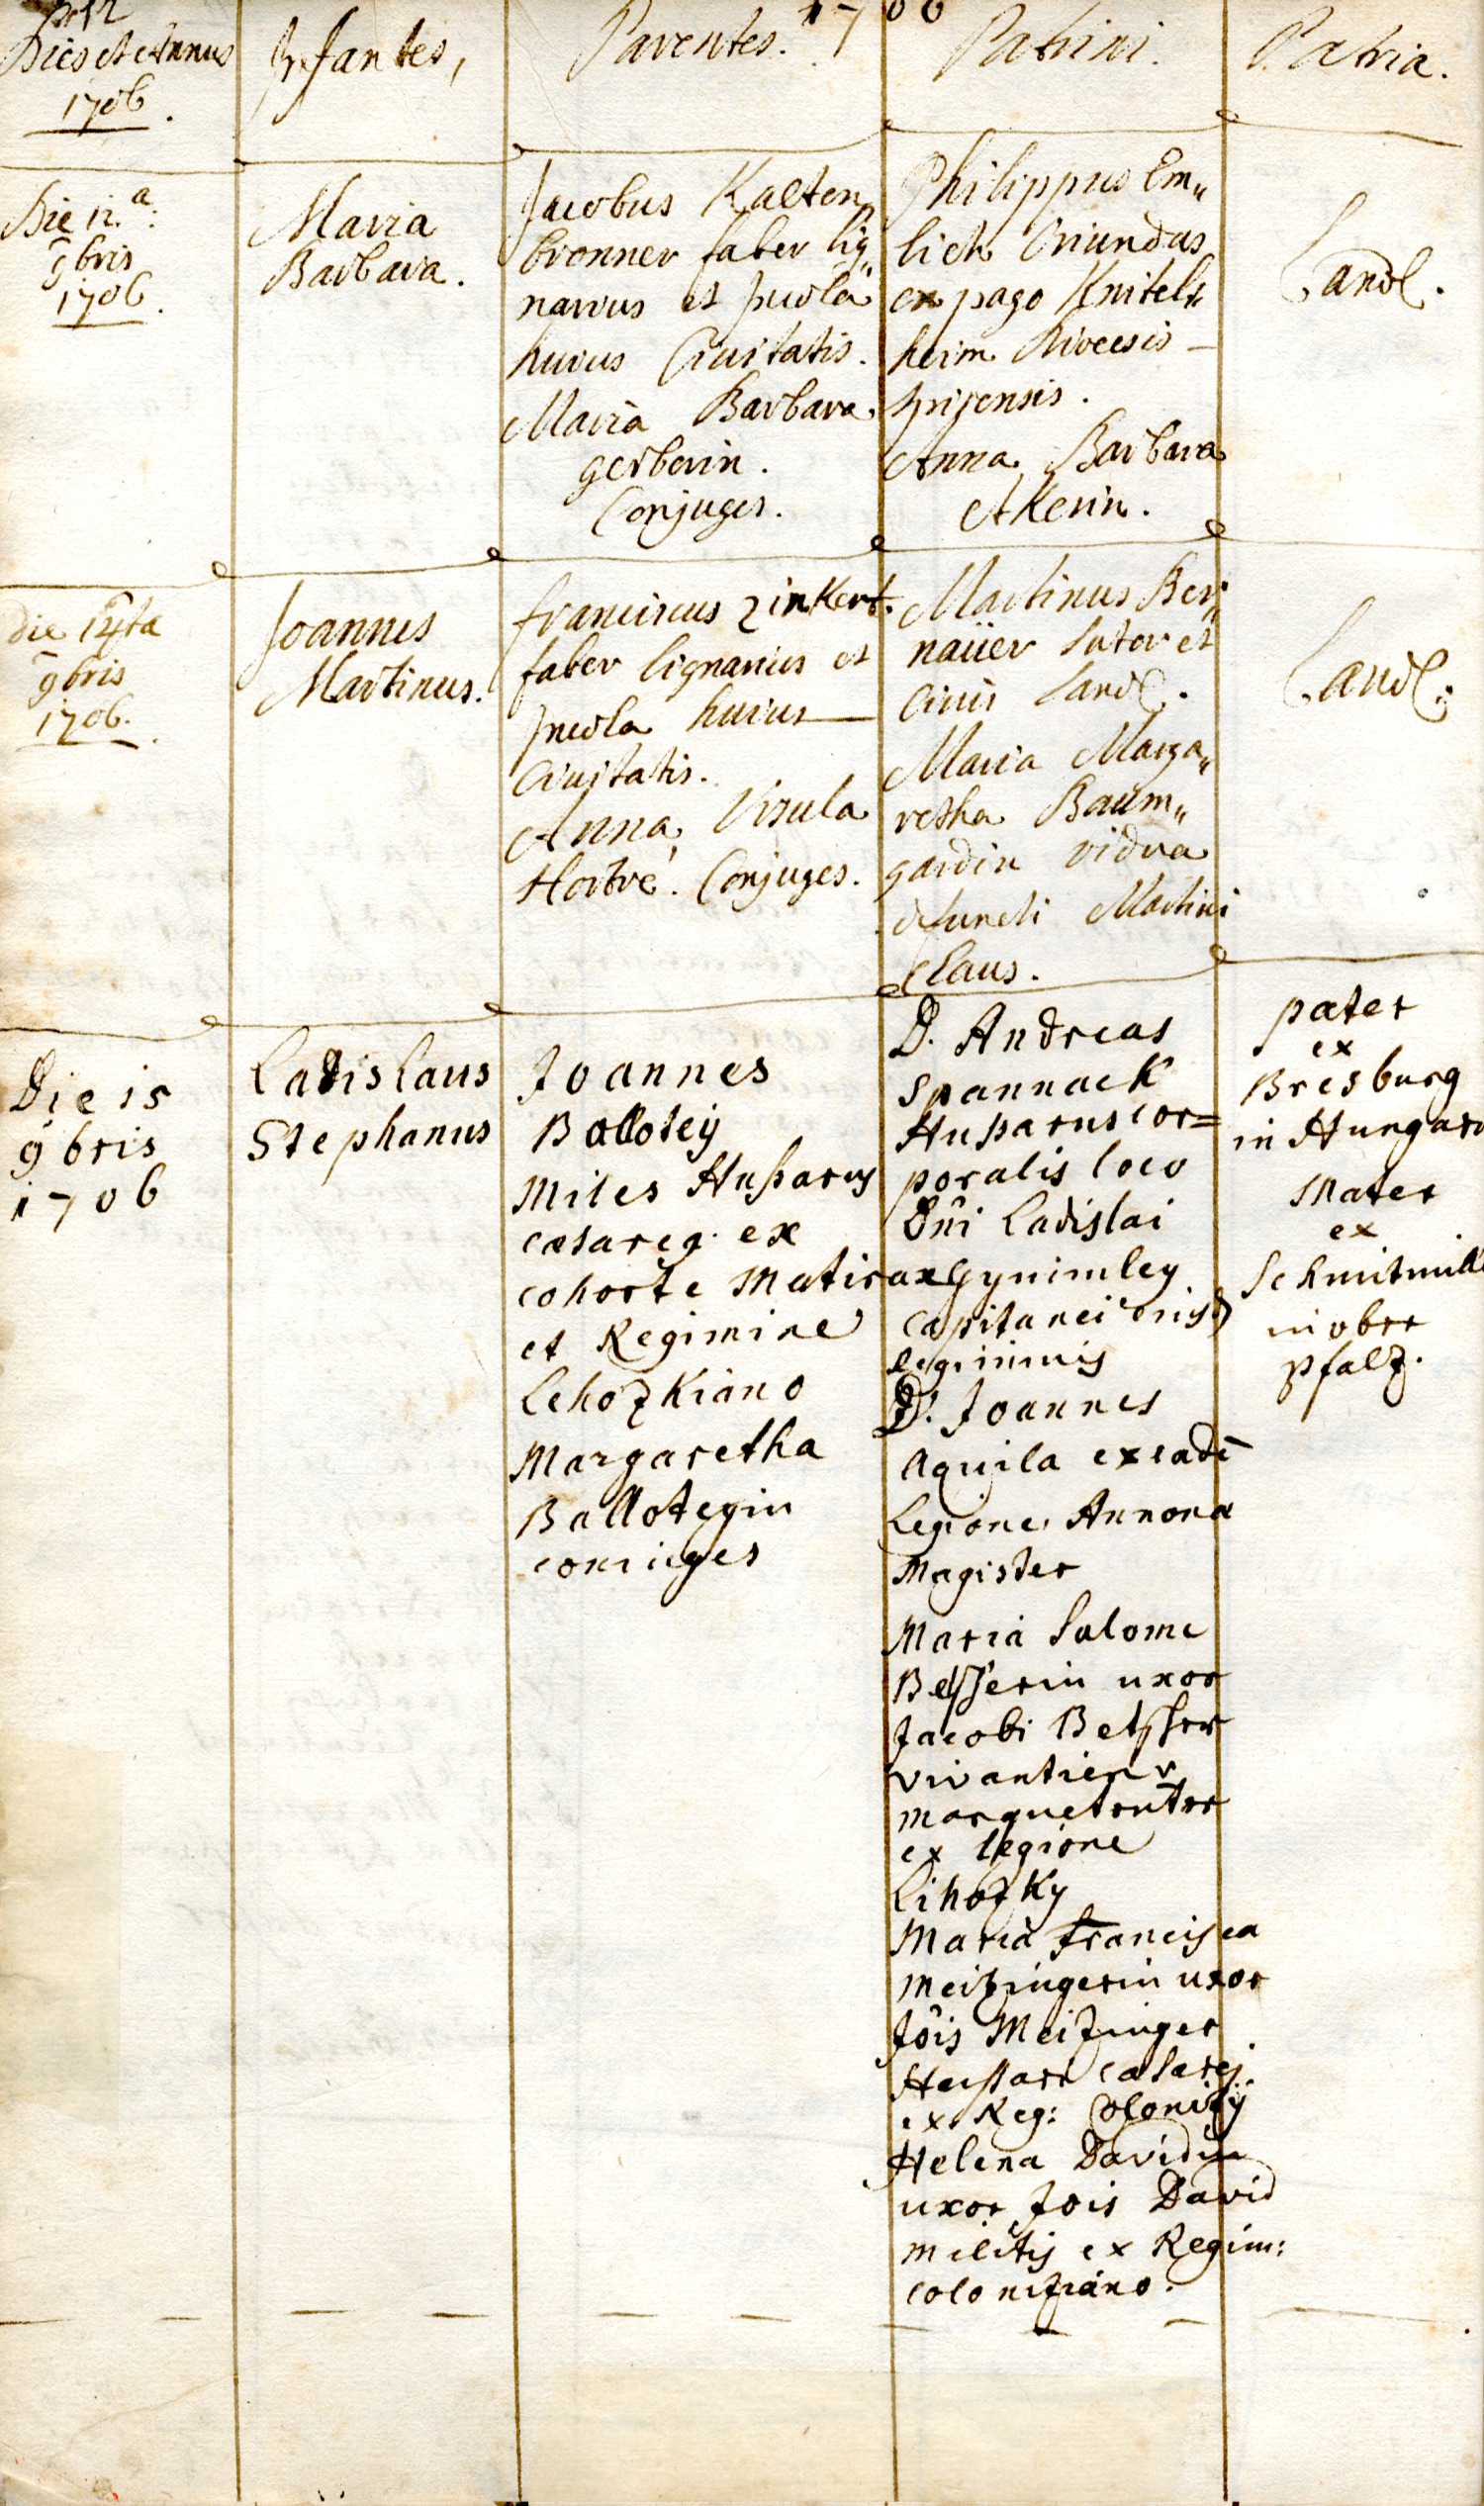 1706
Dies et Annus
1706.
Infantes,
Parentes.
Patrini.
Patria.
Die 12.a:
9bris
1706.
Maria
Barbara.
Jacobus Kalten„
bronner faber lig„
narius et incola
huius Ciuitatis.
Maria Barbara
gerberin.
Conjuges.
Philippus Em„
lich Oriundus
ex pago Knitels„
heim Dioecesis –
spirensis.
Anna Barbara
Akerin.
Land.
die 14ta
9bris
1706.
Joannes
Martinus.
franciscus zinkert.
faber lignarius et
incola huius
Ciuitatis.
Anna Ursula
Hortré. Conjuges.
Martinus Ber„
naüer sutor et
Ciuis Land.
Maria Marga„
retha Baüm„
gardin vidua
defuncti Martini
Claus.
Land.
Die 15
9bris
1706
Ladislaus
Stephanus
Joannes
Ballotey
Miles Hußarus
cæsareg. ex
cohorte Maticrax
et Regimine
Lehozkiano
Margaretha
Ballotegin
coniuges
D. Andreas
Spannack
Hußarus cor=
poralis loco
Dni Ladislai
Gynimley
Capitanei eiusd
regiminis
D. Joannes
Aquila ex eade
Legione Annona
Magister
Maria Salome
Beßerin uxor
Jacobi Betßer
vivantier v
marquetenter
ex legione
Lihozky
Maria Francisca
Meitzingerin uxor
Jois Meitzinger
Hussari cæsarej
ex Reg: Colonizij
Helena Davidin
uxor Jois David
militis ex Regim:
coloniziano.
pater
ex
Bresburg
in Hungaria
Mater
ex
Schmitmill
in ober
pfalz.